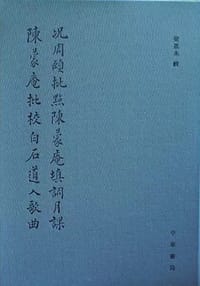 輯
中華書局
況周頤批點陳蒙庵填詞月課
陳蒙庵批校白石道人歌曲